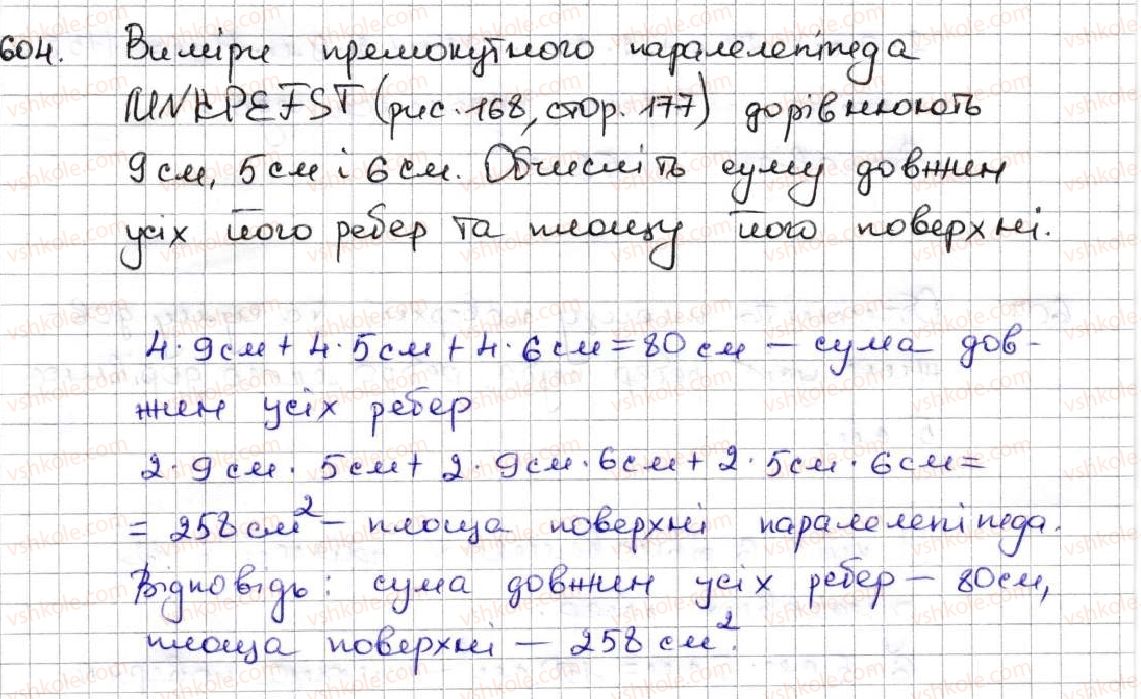 604. Виміри прямокутного паралелепіпеда
MNKPEFST (рис. 168, стор. 177) дорівнюють
9 см, 5 см і 6 см. Обчисліть суму довжин
усіх його ребер та площу його поверхні.
4 · 9 см + 4 · 5 см + 4 · 6 см = 80 см – сума дов-
жин усіх ребер
2 · 9 см · 5 см + 2 · 9 см · 6 см + 2 · 5 см · 6 см =
= 258 см² – площа поверхні паралелепіпеда.
Відповідь: сума довжин усіх ребер – 80 см,
площа поверхні – 258 см².